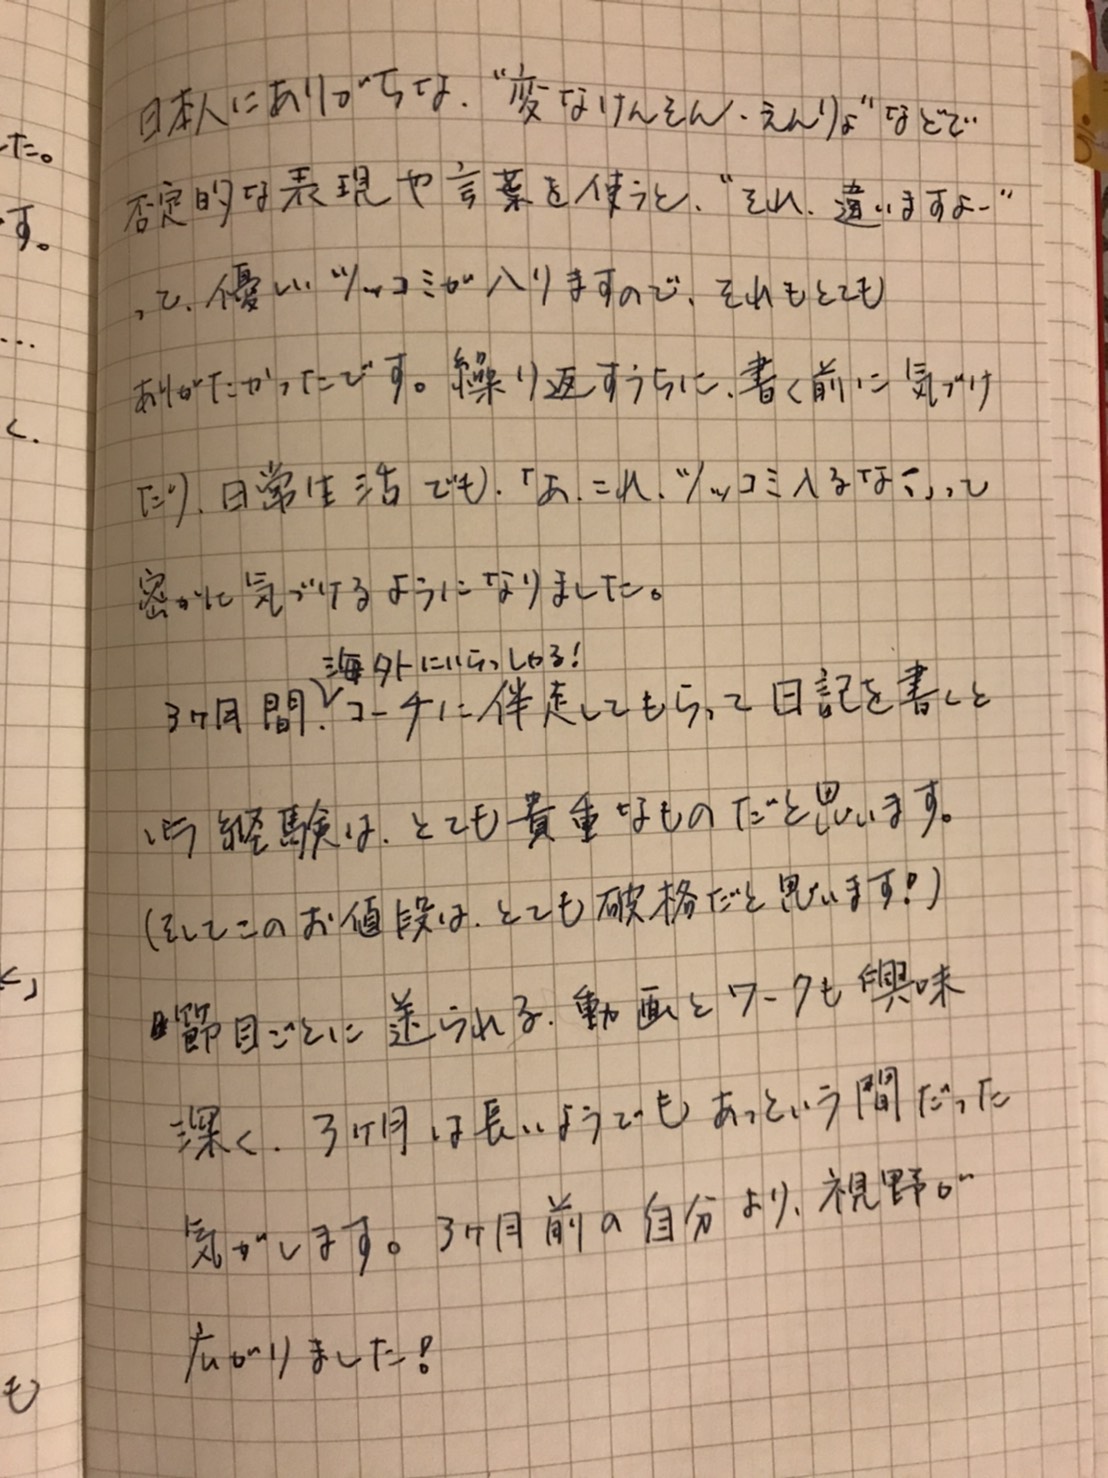 した。
す。
…
く.
と」
も
日本人にありがちな、“変なけんそん・えんりょ”などで
否定的な表現や言葉を使うと、“それ、違いますよー”
って、優しいツッコミが入りますので、それもとても
ありがたかったです。繰り返すうちに、書く前に気づけ
たり、日常生活でも、「あ、これ、ツッコミ入るな…」って
密かに気づけるようになりました。
海外にいらっしゃる！
3ヶ月間、コーチに伴走してもらって日記を書くと
いう経験は、とても貴重なものだと思います。
(そしてこのお値段は、とても破格だと思います！)
節目ごとに送られる、動画とワークも興味
深く、3ヶ月は長いようでもあっという間だった
気がします。3ヶ月前の自分より、視野が
広がりました！